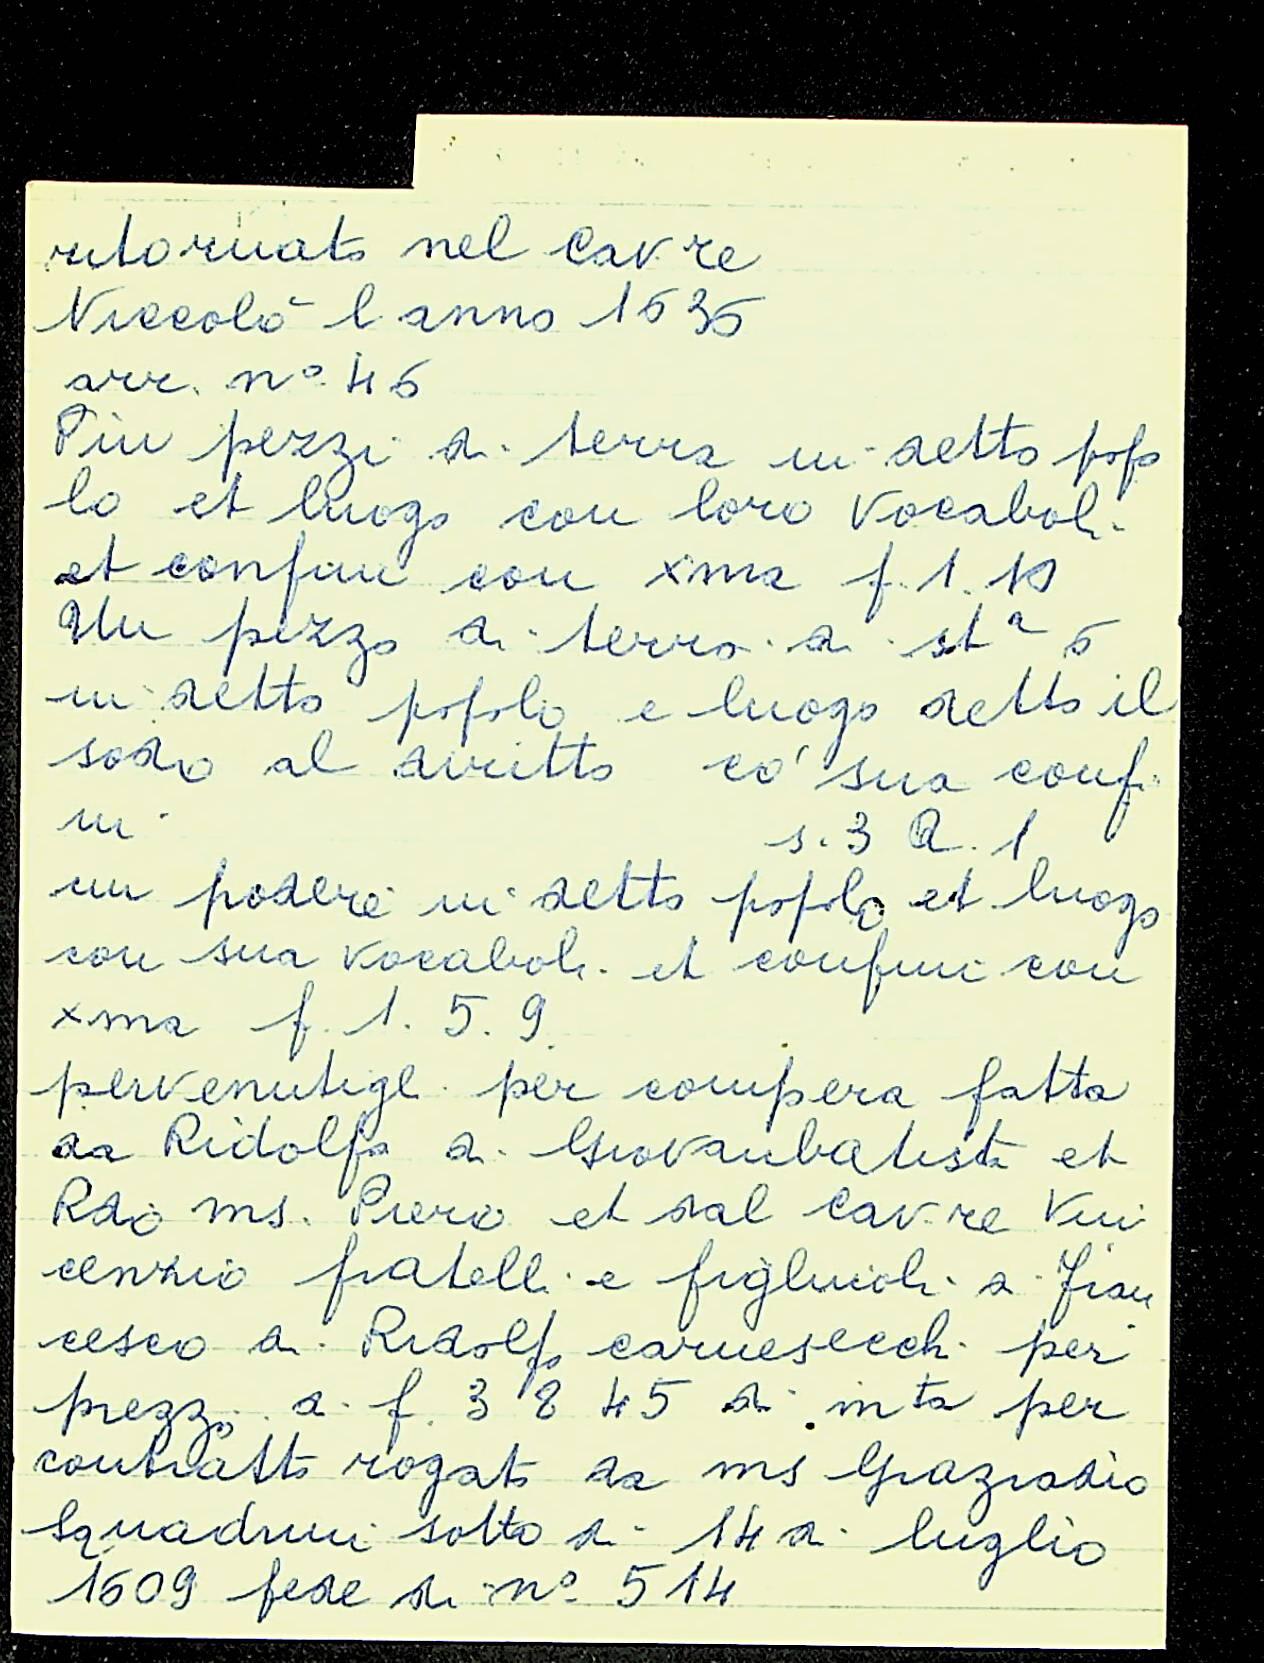 ritornato nel Cav.re
Niccolò l anno 1636
arr. n° 46
Piu pezzi di terra in detto popo
lo et luogo con loro vocaboli
et confini con xma f. 1. 10
Un pezzo di terra di st a 6
in detto popolo e luogo detto il
sodo al diritto co' sua confi
ni s. 3 R. 1
un podere in detto popolo et luogo
con sua vocaboli et confini con
xma f. 1. 5. 9
pervenutigli per compera fatta
da Ridolfo di Giovanbatista et
Rdo ms. Piero et dal Cav.re Vin
cenzio fratelli e figliuoli di Fran
cesco di Ridolfo carnesecchi per
prezzo di f. 3845 di mta per
contratto rogato da ms Graziadio
Squadrini sotto di 14 di luglio
1609 fede di n° 514